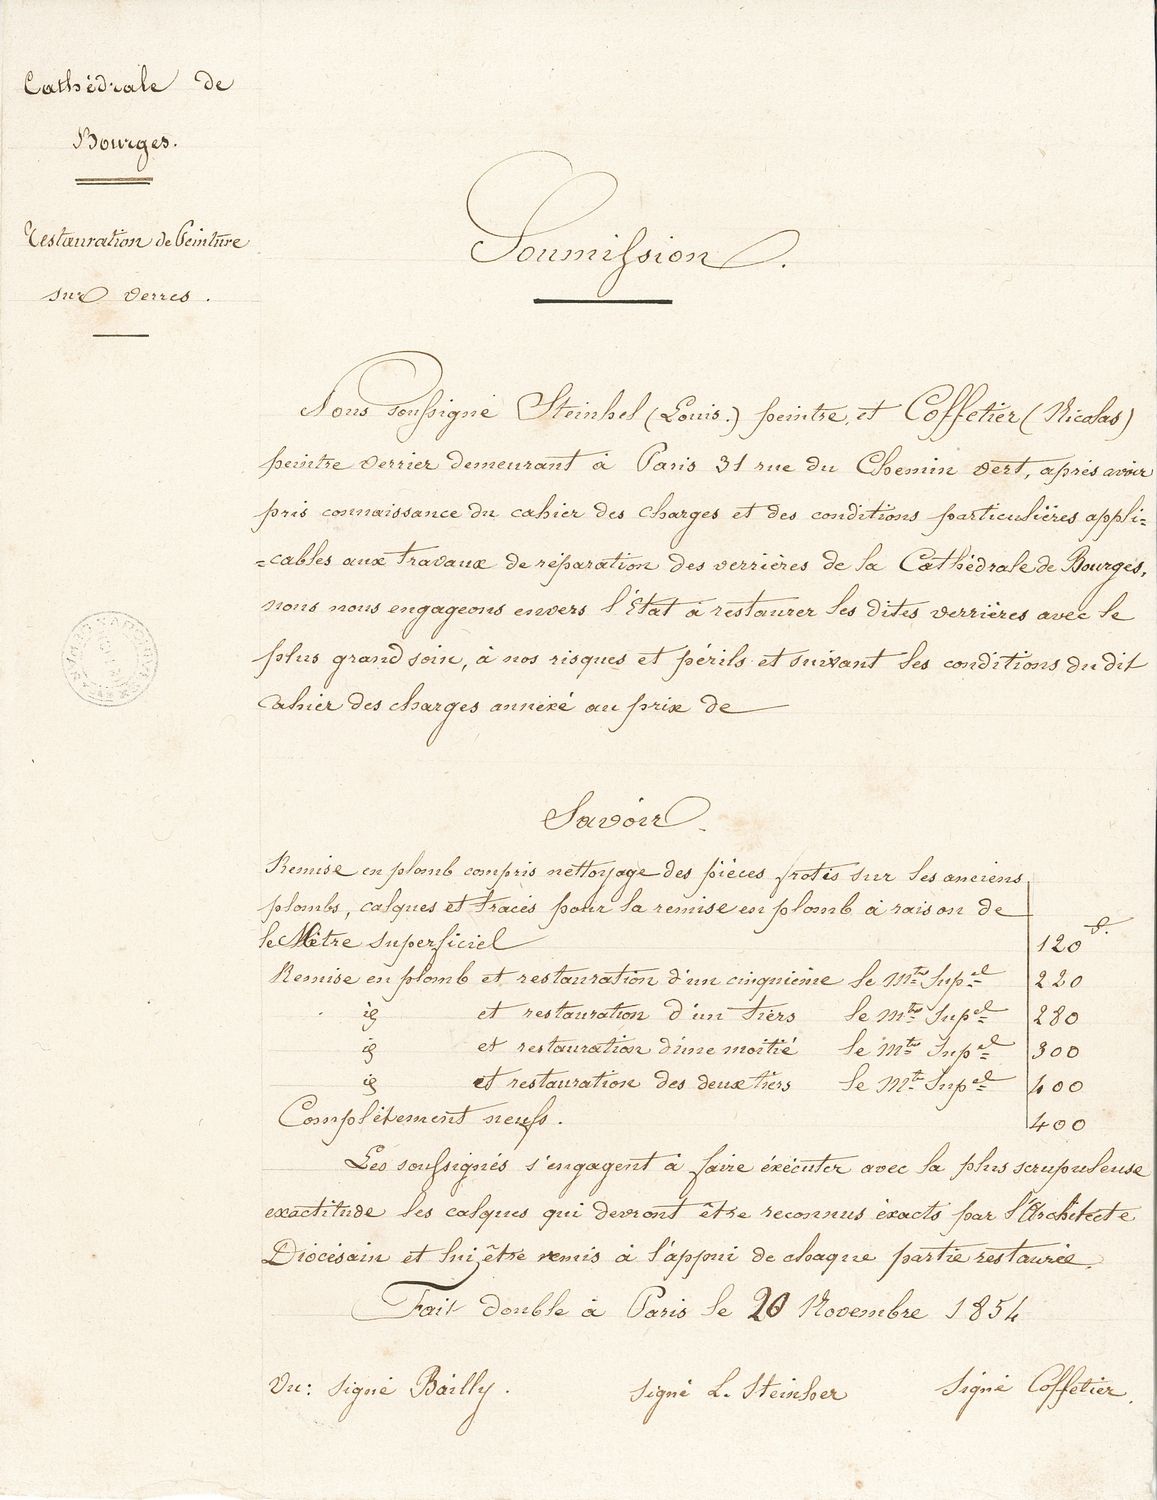 Cathédrale de
Bourges.
Restauration de Peinture
sur verres.
Soumission.
Nous soussigné Steinhel (Louis.) peintre, et Coffetier (Nicolas)
peintre verrier demeurant à Paris 31 rue du Chemin vert, après avoir
pris connaissance du cahier des charges et des conditions particulières appli=
=cables aux travaux de réparation des verrières de la Cathédrale de Bourges,
nous nous engageons envers l'État à restaurer les dites verrières avec le
plus grand soin, à nos risques et périls et suivant les conditions du dit
cahier des charges annexé au prix de
Savoir.
Remise en plomb compris nettoyage des pièces frotis sur les anciens
plombs, calques et tracés pour la remise en plomb à raison de
le Mètre superficiel 120 f.
Remise en plomb et restauration d'un cinquième le mtre Supel 220
id et restauration d'un tiers le mtre Supel 280
id et restauration d'une moitié le mtre Supel 300
id et restauration des deux tiers le mtre Supel 400
Complètement neufs. 400
Les soussignés s'engagent à faire éxécuter avec la plus scrupuleuse
exactitude les calques qui devront être reconnus éxacts par l'Architecte
Diocésain et lui être remis à l'appui de chaque partie restaurée.
Fait double à Paris le 20 Novembre 1854
Vu: signé Bailly. signé L. Steinher signé Coffetier.